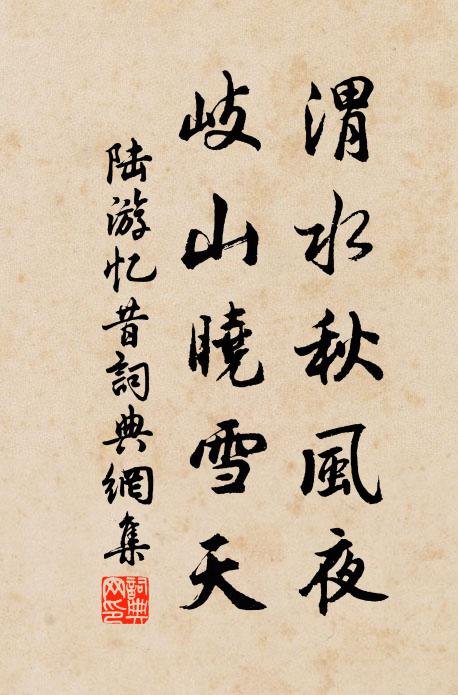 渭水秋風夜
岐山曉雪天
陆游忆昔詞典網集
詞典网印